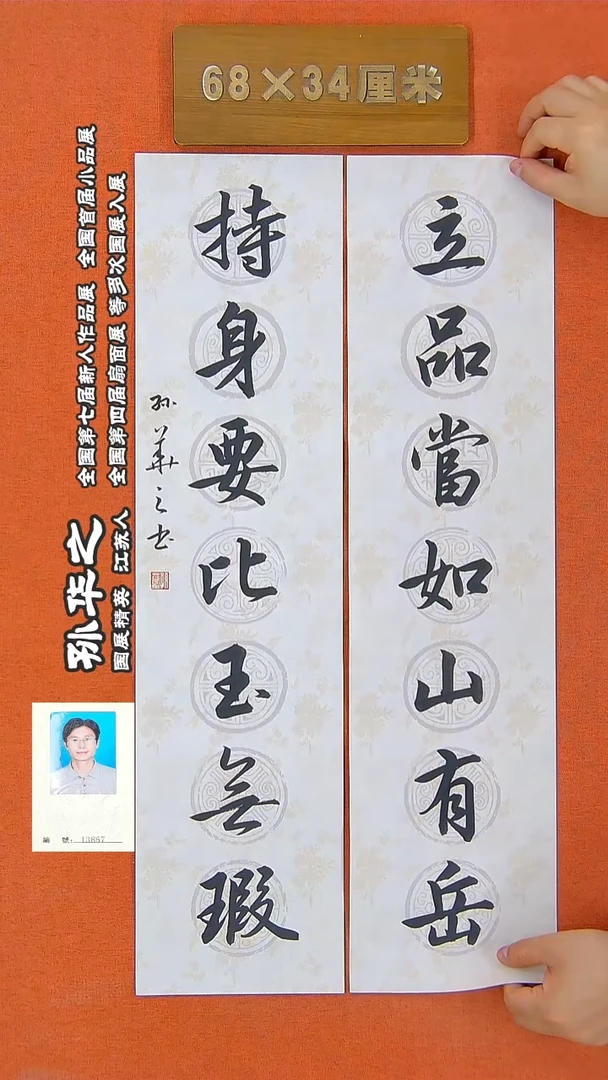 68×34厘米
立品當如山有岳
持身要比玉無瑕
孙華之书
孙华之
国展精英 江苏人
全国第七届新人作品展 全国首届小品展
全国第四届扇面展 等多次国展入展
編 號: 13857